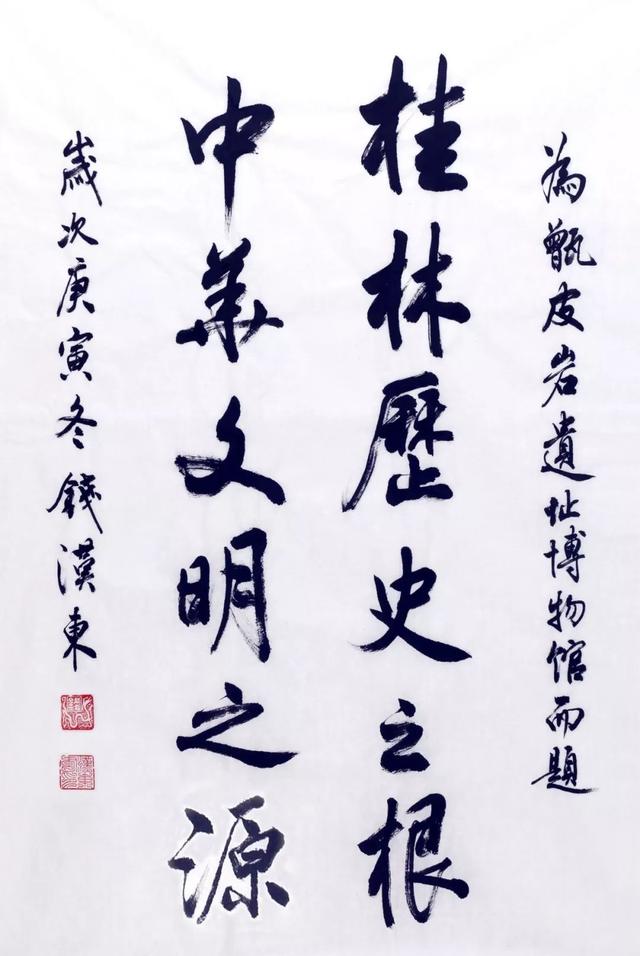 為甑皮岩遺址博物馆而題
桂林歷史之根
中华文明之源
歲次庚寅冬錢漢東